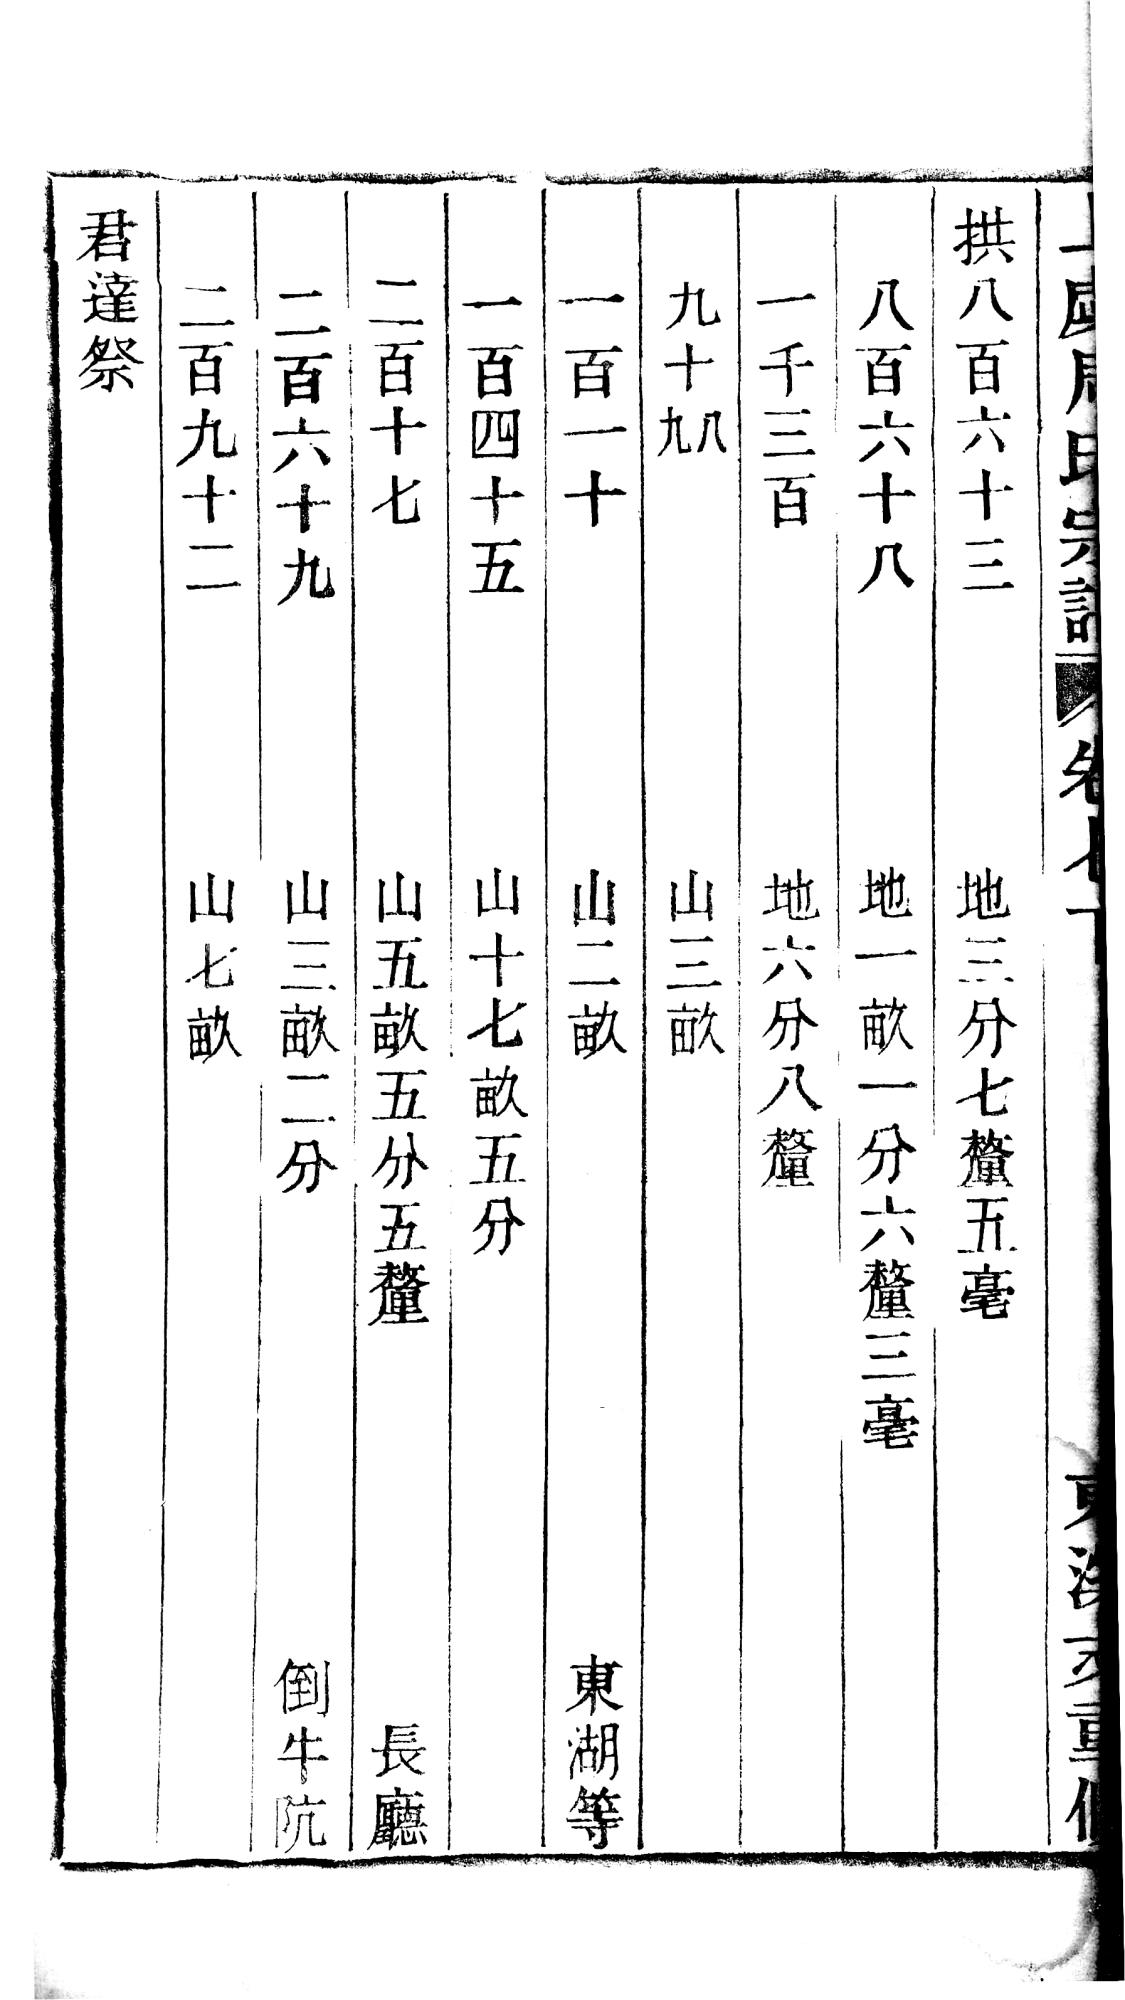 周氏宗譜 卷七下 重修
拱八百六十三 地三分七釐五毫
八百六十八 地一畝一分六釐三毫
一千三百 地六分八釐
九十八九 山三畝
一百一十 山二畝 東湖等
一百四十五 山十七畝五分
二百十七 山五畝五分五釐 長廳
二百六十九 山三畝二分 倒牛阬
二百九十二 山七畝
君達祭